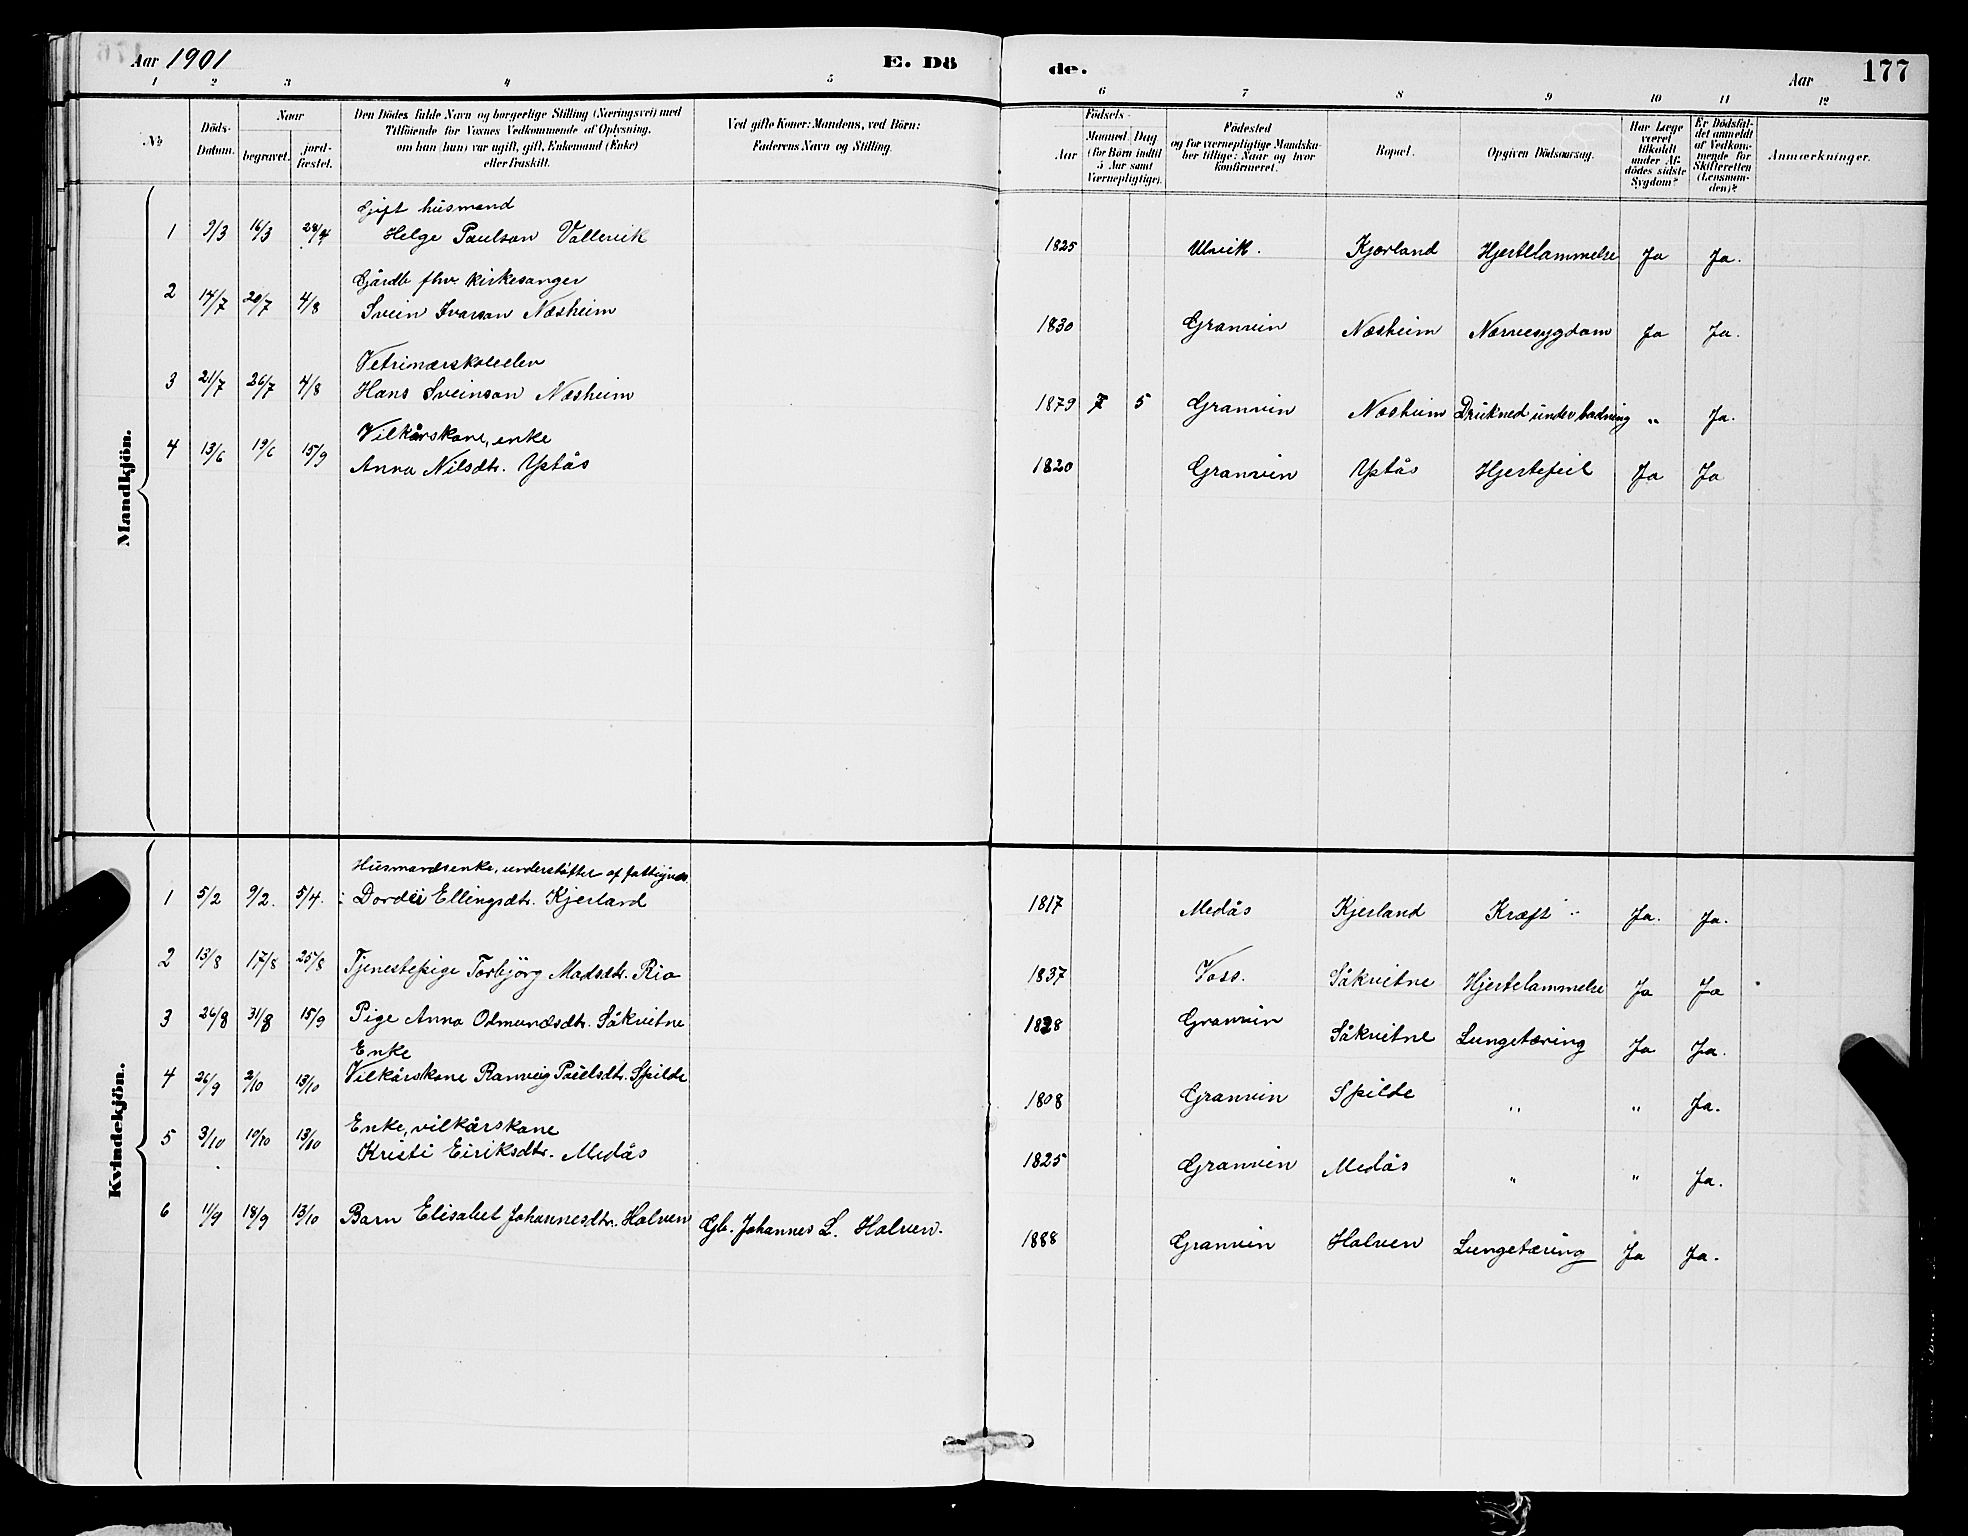 Aar 1901 E. Dö de. Aar 177
1 2 3 4 5 6 7 8 9 10 11 12
№
Döds-Datum.
Naar
begravet.
jord-fæstet.
Den Dödes fulde Navn og borgerlige Stilling (Næringsvei) med
Tilföiende for Voxnes Vedkommende af Oplysning,
om han (hun) var ugift, gift, Enkemand (Enke)
eller fraskilt.
Ved gifte Koner: Mandens, ved Börn:
Faderens Navn og Stilling.
Födsels-
Aar
Maaned Dag
(for Börn indtil
5 Aar samt
Værnepligtige).
Födested
og for værnepligtige Mandska-
ber tillige: Naar og hvor
konfirmeret.
Bopæl.
Opgiven Dödsaarsag.
Har Læge
været
tilkaldt
under Af-
dödes sidste
Sygdom?
Er Dödsfal-
det anmeldt
af Vedkom-
mende for
Skifteretten
(Lensman-
den)?
Anmærkninger.
Mandkjön.
Gift husmand
1 9/3 16/3 28/4 Helge Paulson Vallevik 1825 Ulvik. Kjærland Hjertelammelse Ja Ja.
Gårdb. fhv. kirkesanger
2 14/7 20/7 4/8 Svein Ivarson Næsheim 1830 Granvin Næsheim Nærvesygdom Ja Ja.
Vetrinærskoleelev
3 21/7 26/7 4/8 Hans Sveinson Næsheim 1879 7 5 Granvin Næsheim Drukned under badning " Ja.
Vilkårskone, enke
4 13/6 19/6 15/9 Anna Nilsdtr. Ystås 1820 Granvin Ystås Hjertefeil Ja Ja
Kvindekjön.
Husmandsenke, understøttet af fattigvæs.
1 5/2 9/2. 5/4. Dordei Ellingsdtr. Kjerland 1817 Medås Kjerland Kræft Ja. Ja.
2 13/8 17/8 25/8 Tjenestepige Torbjörg Madsdtr. Rio 1837 Voss. Såkvitne Hjertelammelse Ja Ja
3 26/8 31/8 15/9 Pige Anna Odmundsdtr. Såkvitne 1828 Granvin Såkvitne Lungetæring Ja Ja.
Enke
4 26/9 2/10 13/10 Vilkårskone Ranveig Paulsdtr. Spilde 1808 Granvin Spilde " " Ja.
Enke, vilkårskone
5 3/10 10/10 13/10 Kristi Eiriksdtr. Medås 1825 Granvin Medås " " Ja.
6 11/9 18/9 13/10 Barn Elisabet Johannesdtr. Halven Gb. Johannes L. Halven. 1888 Granvin Halven Lungetæring Ja Ja.